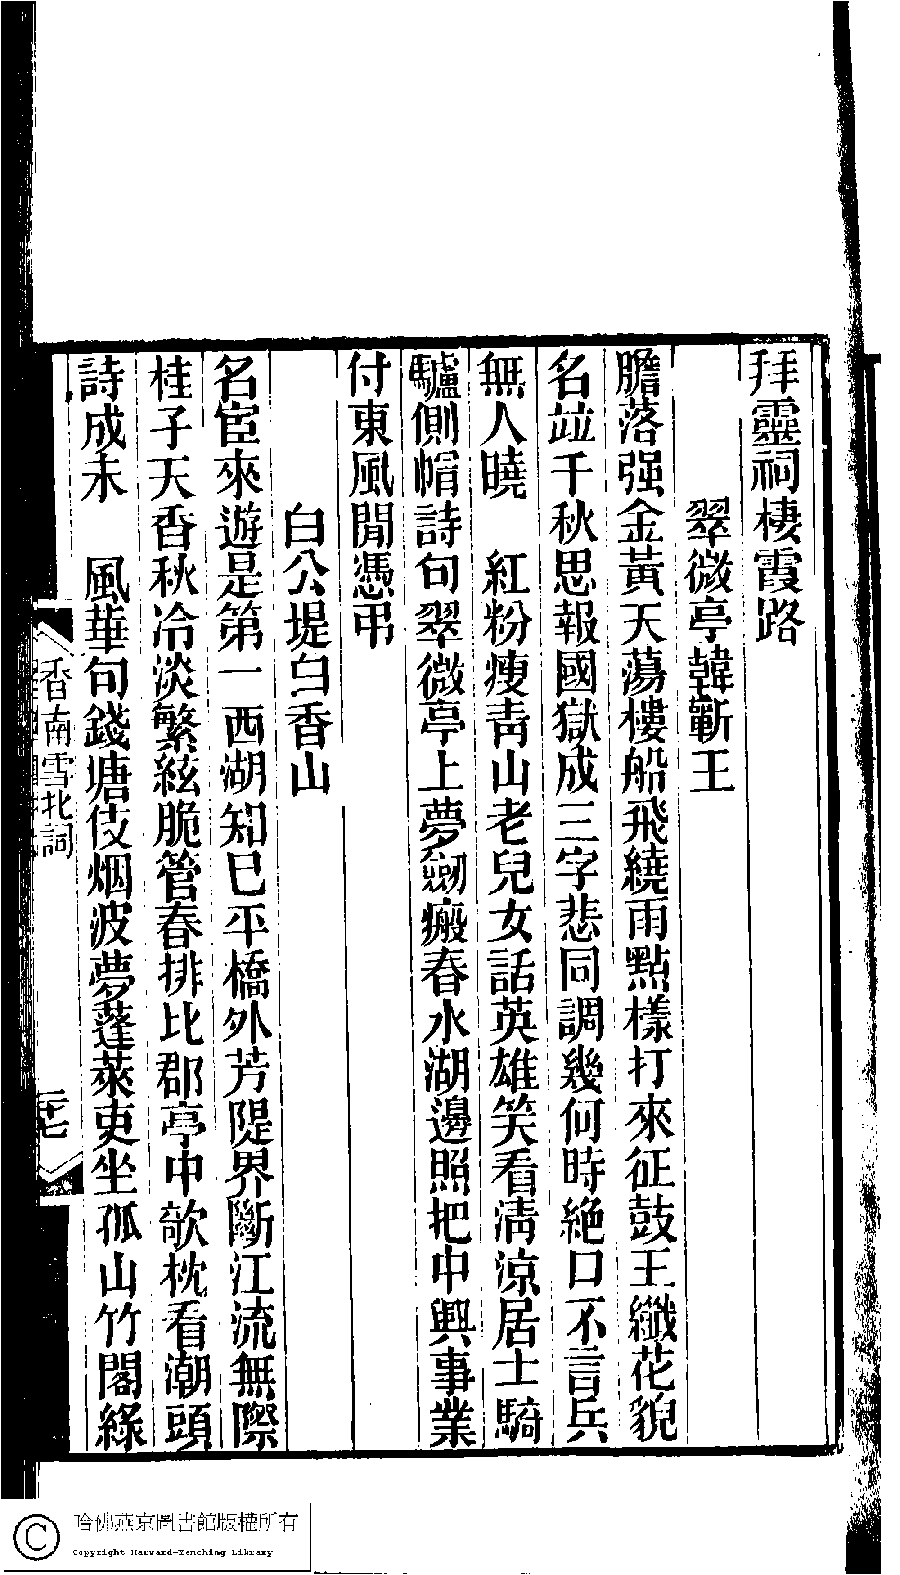 拜靈祠棲霞路
翠微亭韓蘄王
膽落强金黃天蕩樓船飛繞雨點樣打來征鼓王纖花貌
名竝千秋思報國獄成三字悲同調幾何時絶口不言兵
無人曉　紅粉瘦青山老兒女話英雄笑看清涼居士騎
驢側帽詩句翠微亭上夢劒瘢春水湖邊照把中興事業
付東風閒憑弔
白公堤白香山
名宦來遊是第一西湖知已平橋外芳隄界斷江流無際
桂子天香秋冷淡繁絃脆管春排比郡亭中欹枕看潮頭
詩成未　風華句錢塘伎烟波夢蓬萊吏坐孤山竹閣綠
香南雪北詞
哈佛燕京圖書館版權所有
Copyright Harvard-Yenching Library